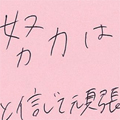 努力は
と信じて頑張